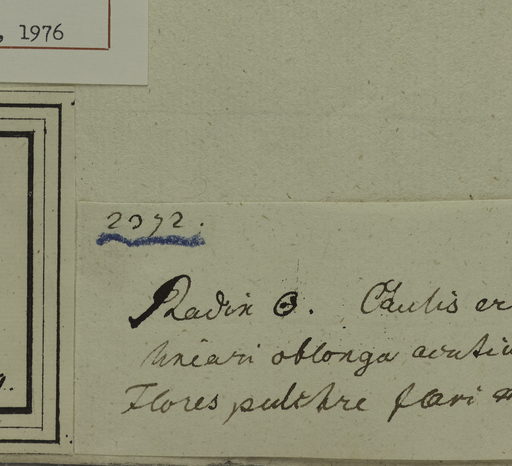 , 1976
2372.
Radix ʘ. Caulis er
lineari oblonga acuti
Flores pulchre flavi
9.